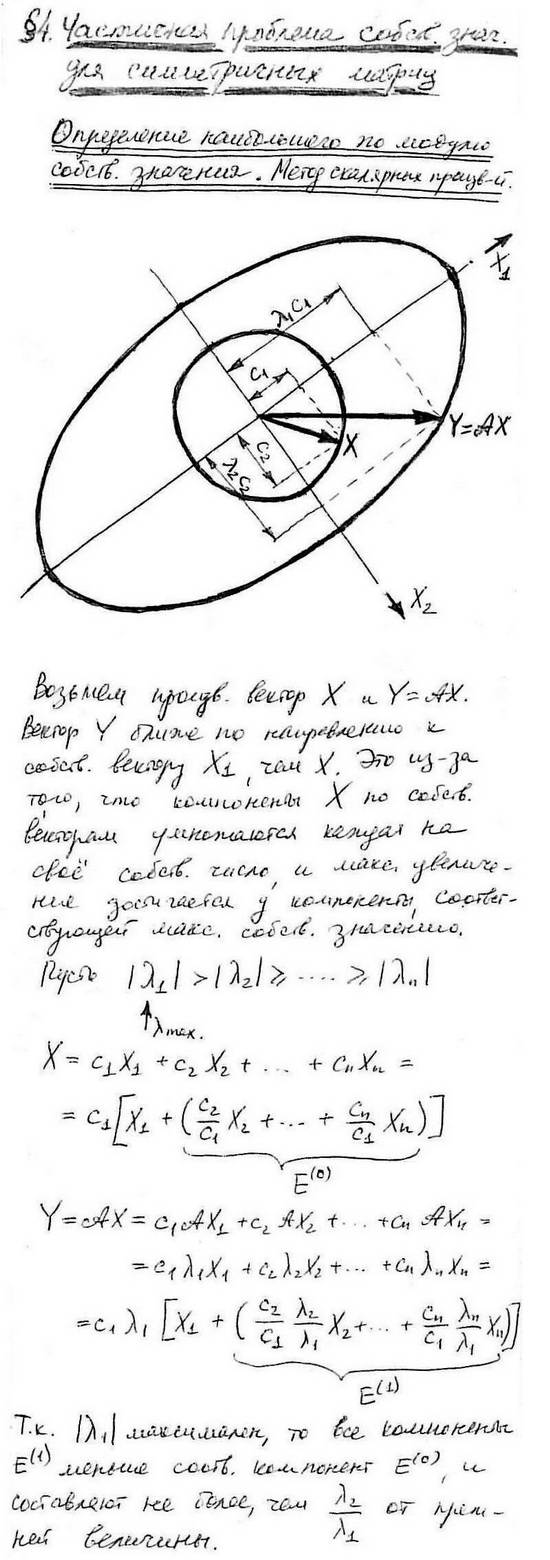 §4. Частичная проблема собств. знач.
для симметричных матриц
Определение наибольшего по модулю
собств. значения. Метод скалярных произв-й.
X₁
λ₁c₁
c₁
Y=AX
X
c₂
λ₂c₂
X₂
Возьмем произв. вектор X и Y=AX.
Вектор Y ближе по направлению к
собств. вектору X₁, чем X. Это из-за
того, что компоненты X по собств.
векторам умножаются каждая на
своё собств. число, и макс. увеличе-
ние достигается у компоненты, соответ-
ствующей макс. собств. значению.
Пусть |λ₁| > |λ₂| ≥ ..... ≥ |λₙ|
↑ λmax.
X = c₁X₁ + c₂X₂ + ... + cₙXₙ =
= c₁[X₁ + (c₂/c₁ X₂ + ... + cₙ/c₁ Xₙ)]
E⁽⁰⁾
Y = AX = c₁AX₁ + c₂AX₂ + ... + cₙAXₙ =
= c₁λ₁X₁ + c₂λ₂X₂ + ... + cₙλₙXₙ =
= c₁λ₁ [X₁ + (c₂/c₁ λ₂/λ₁ X₂ + ... + cₙ/c₁ λₙ/λ₁ Xₙ)]
E⁽¹⁾
Т.к. |λ₁| максимален, то все компоненты
E⁽¹⁾ меньше соотв. компонент E⁽⁰⁾, и
составляют не более, чем λ₂/λ₁ от преж-
ней величины.